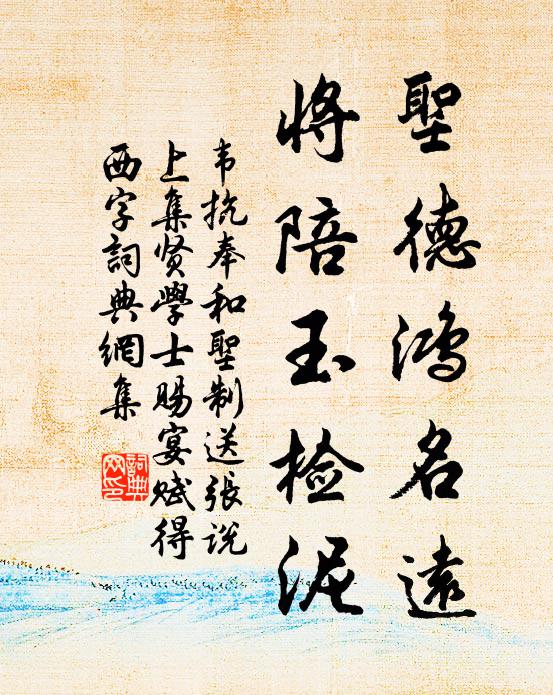 聖德鴻名遠
將陪玉檢泥
韦抗奉和聖制送張说
上集贤學士賜宴赋得
西字詞典網集
詞典
网印